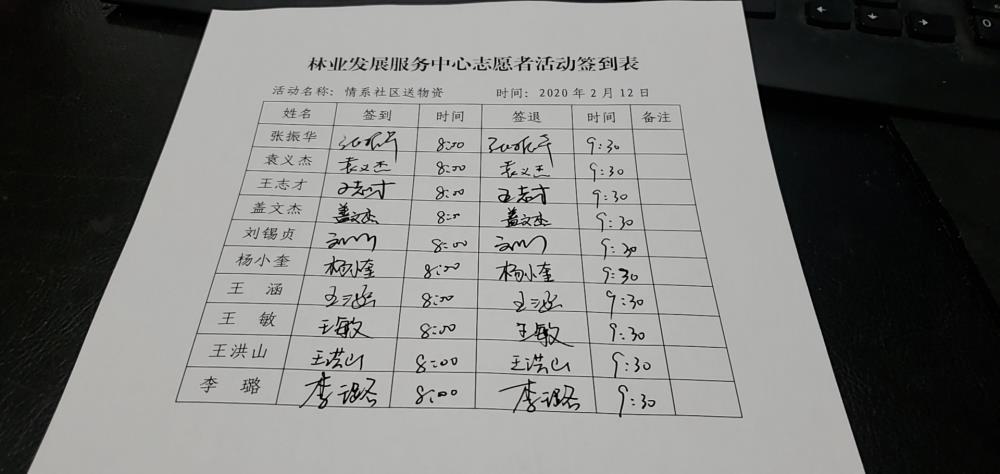 林业发展服务中心志愿者活动签到表
活动名称：情系社区送物资 时间：2020年2月12日
姓名 签到 时间 签退 时间 备注
张振华 张振华 8:00 张振华 9:30
袁义杰 袁义杰 8:00 袁义杰 9:30
王志才 王志才 8:00 王志才 9:30
盖文杰 盖文杰 8:00 盖文杰 9:30
刘锡贞 8:00 9:30
杨小奎 杨小奎 8:00 杨小奎 9:30
王 涵 王涵 8:00 王涵 9:30
王 敏 王敏 8:00 王敏 9:30
王洪山 王洪山 8:00 王洪山 9:30
李 璐 李璐 8:00 李璐 9:30